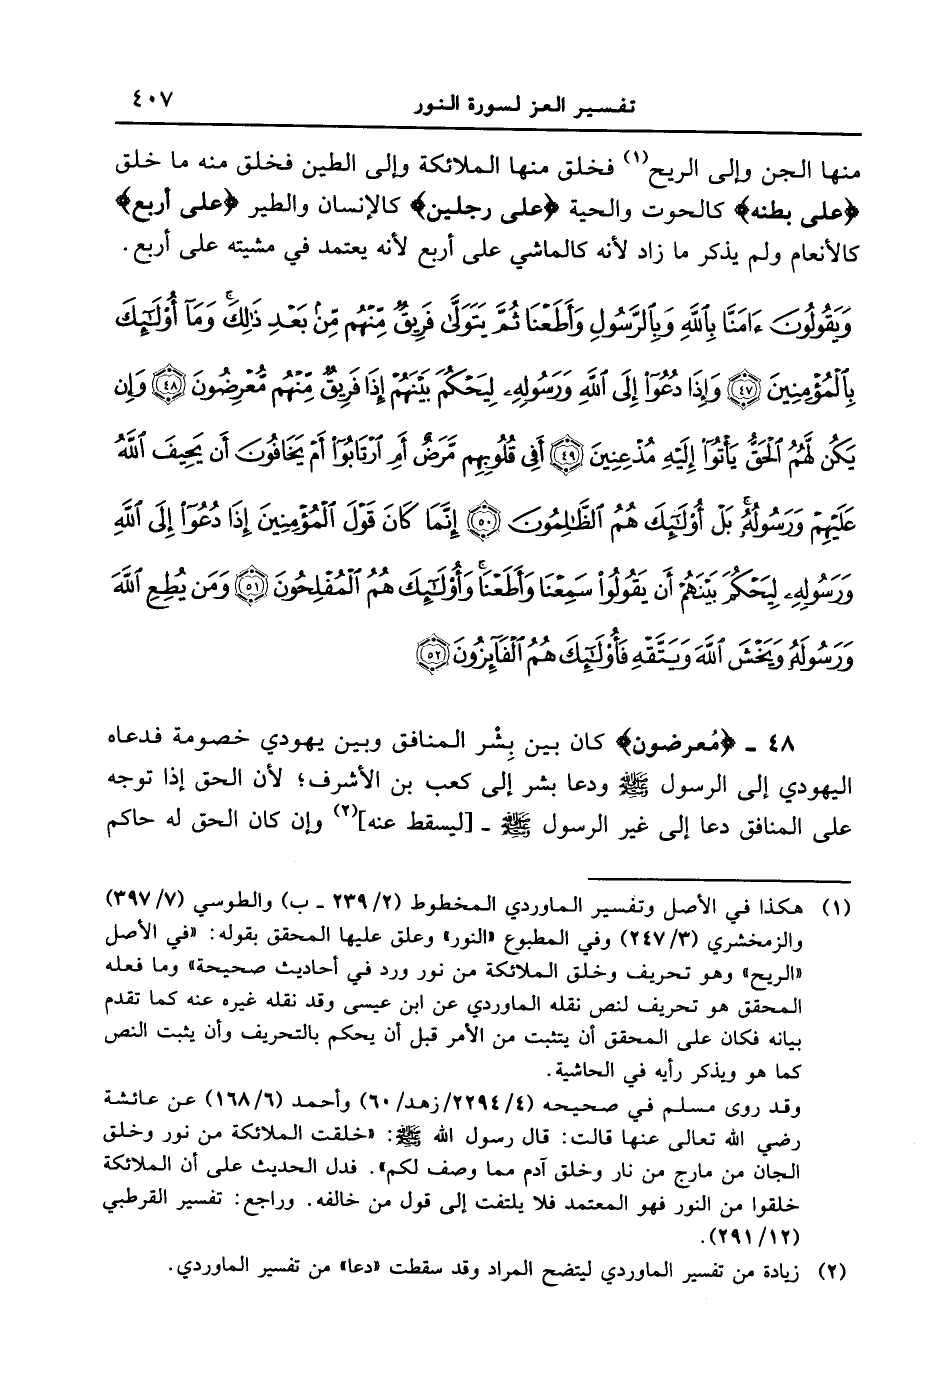 تفسير العز لسورة النور ٤٠٧
منها الجن وإلى الريح(١) فخلق منها الملائكة وإلى الطين فخلق منه ما خلق
﴿على بطنه﴾ كالحوت والحية ﴿على رجلين﴾ كالإنسان والطير ﴿على أربع﴾
كالأنعام ولم يذكر ما زاد لأنه كالماشي على أربع لأنه يعتمد في مشيته على أربع.
وَيَقُولُونَ ءَامَنَّا بِٱللَّهِ وَبِٱلرَّسُولِ وَأَطَعْنَا ثُمَّ يَتَوَلَّىٰ فَرِيقٌ مِّنْهُم مِّنۢ بَعْدِ ذَٰلِكَ ۚ وَمَآ أُو۟لَٰٓئِكَ
بِٱلْمُؤْمِنِينَ ٤٧ وَإِذَا دُعُوٓا۟ إِلَى ٱللَّهِ وَرَسُولِهِۦ لِيَحْكُمَ بَيْنَهُمْ إِذَا فَرِيقٌ مِّنْهُم مُّعْرِضُونَ ٤٨ وَإِن
يَكُن لَّهُمُ ٱلْحَقُّ يَأْتُوٓا۟ إِلَيْهِ مُذْعِنِينَ ٤٩ أَفِى قُلُوبِهِم مَّرَضٌ أَمِ ٱرْتَابُوٓا۟ أَمْ يَخَافُونَ أَن يَحِيفَ ٱللَّهُ
عَلَيْهِمْ وَرَسُولُهُۥ ۚ بَلْ أُو۟لَٰٓئِكَ هُمُ ٱلظَّٰلِمُونَ ٥٠ إِنَّمَا كَانَ قَوْلَ ٱلْمُؤْمِنِينَ إِذَا دُعُوٓا۟ إِلَى ٱللَّهِ
وَرَسُولِهِۦ لِيَحْكُمَ بَيْنَهُمْ أَن يَقُولُوا۟ سَمِعْنَا وَأَطَعْنَا ۚ وَأُو۟لَٰٓئِكَ هُمُ ٱلْمُفْلِحُونَ ٥١ وَمَن يُطِعِ ٱللَّهَ
وَرَسُولَهُۥ وَيَخْشَ ٱللَّهَ وَيَتَّقْهِ فَأُو۟لَٰٓئِكَ هُمُ ٱلْفَآئِزُونَ ٥٢
٤٨ - ﴿مُعرضون﴾ كان بين بِشْر المنافق وبين يهودي خصومة فدعاه
اليهودي إلى الرسول ﷺ ودعا بشر إلى كعب بن الأشرف؛ لأن الحق إذا توجه
على المنافق دعا إلى غير الرسول ﷺ - [ليسقط عنه](٢) وإن كان الحق له حاكم
(١) هكذا في الأصل وتفسير الماوردي المخطوط (٢/٢٣٩ - ب) والطوسي (٧/٣٩٧)
والزمخشري (٣/٢٤٧) وفي المطبوع «النور» وعلق عليها المحقق بقوله: «في الأصل
«الريح» وهو تحريف وخلق الملائكة من نور ورد في أحاديث صحيحة» وما فعله
المحقق هو تحريف لنص نقله الماوردي عن ابن عيسى وقد نقله غيره عنه كما تقدم
بيانه فكان على المحقق أن يتثبت من الأمر قبل أن يحكم بالتحريف وأن يثبت النص
كما هو ويذكر رأيه في الحاشية.
وقد روى مسلم في صحيحه (٤/٢٢٩٤/زهد/٦٠) وأحمد (٦/١٦٨) عن عائشة
رضي الله تعالى عنها قالت: قال رسول الله ﷺ: «خلقت الملائكة من نور وخلق
الجان من مارج من نار وخلق آدم مما وصف لكم». فدل الحديث على أن الملائكة
خلقوا من النور فهو المعتمد فلا يلتفت إلى قول من خالفه. وراجع: تفسير القرطبي
(١٢/٢٩١).
(٢) زيادة من تفسير الماوردي ليتضح المراد وقد سقطت «دعا» من تفسير الماوردي.